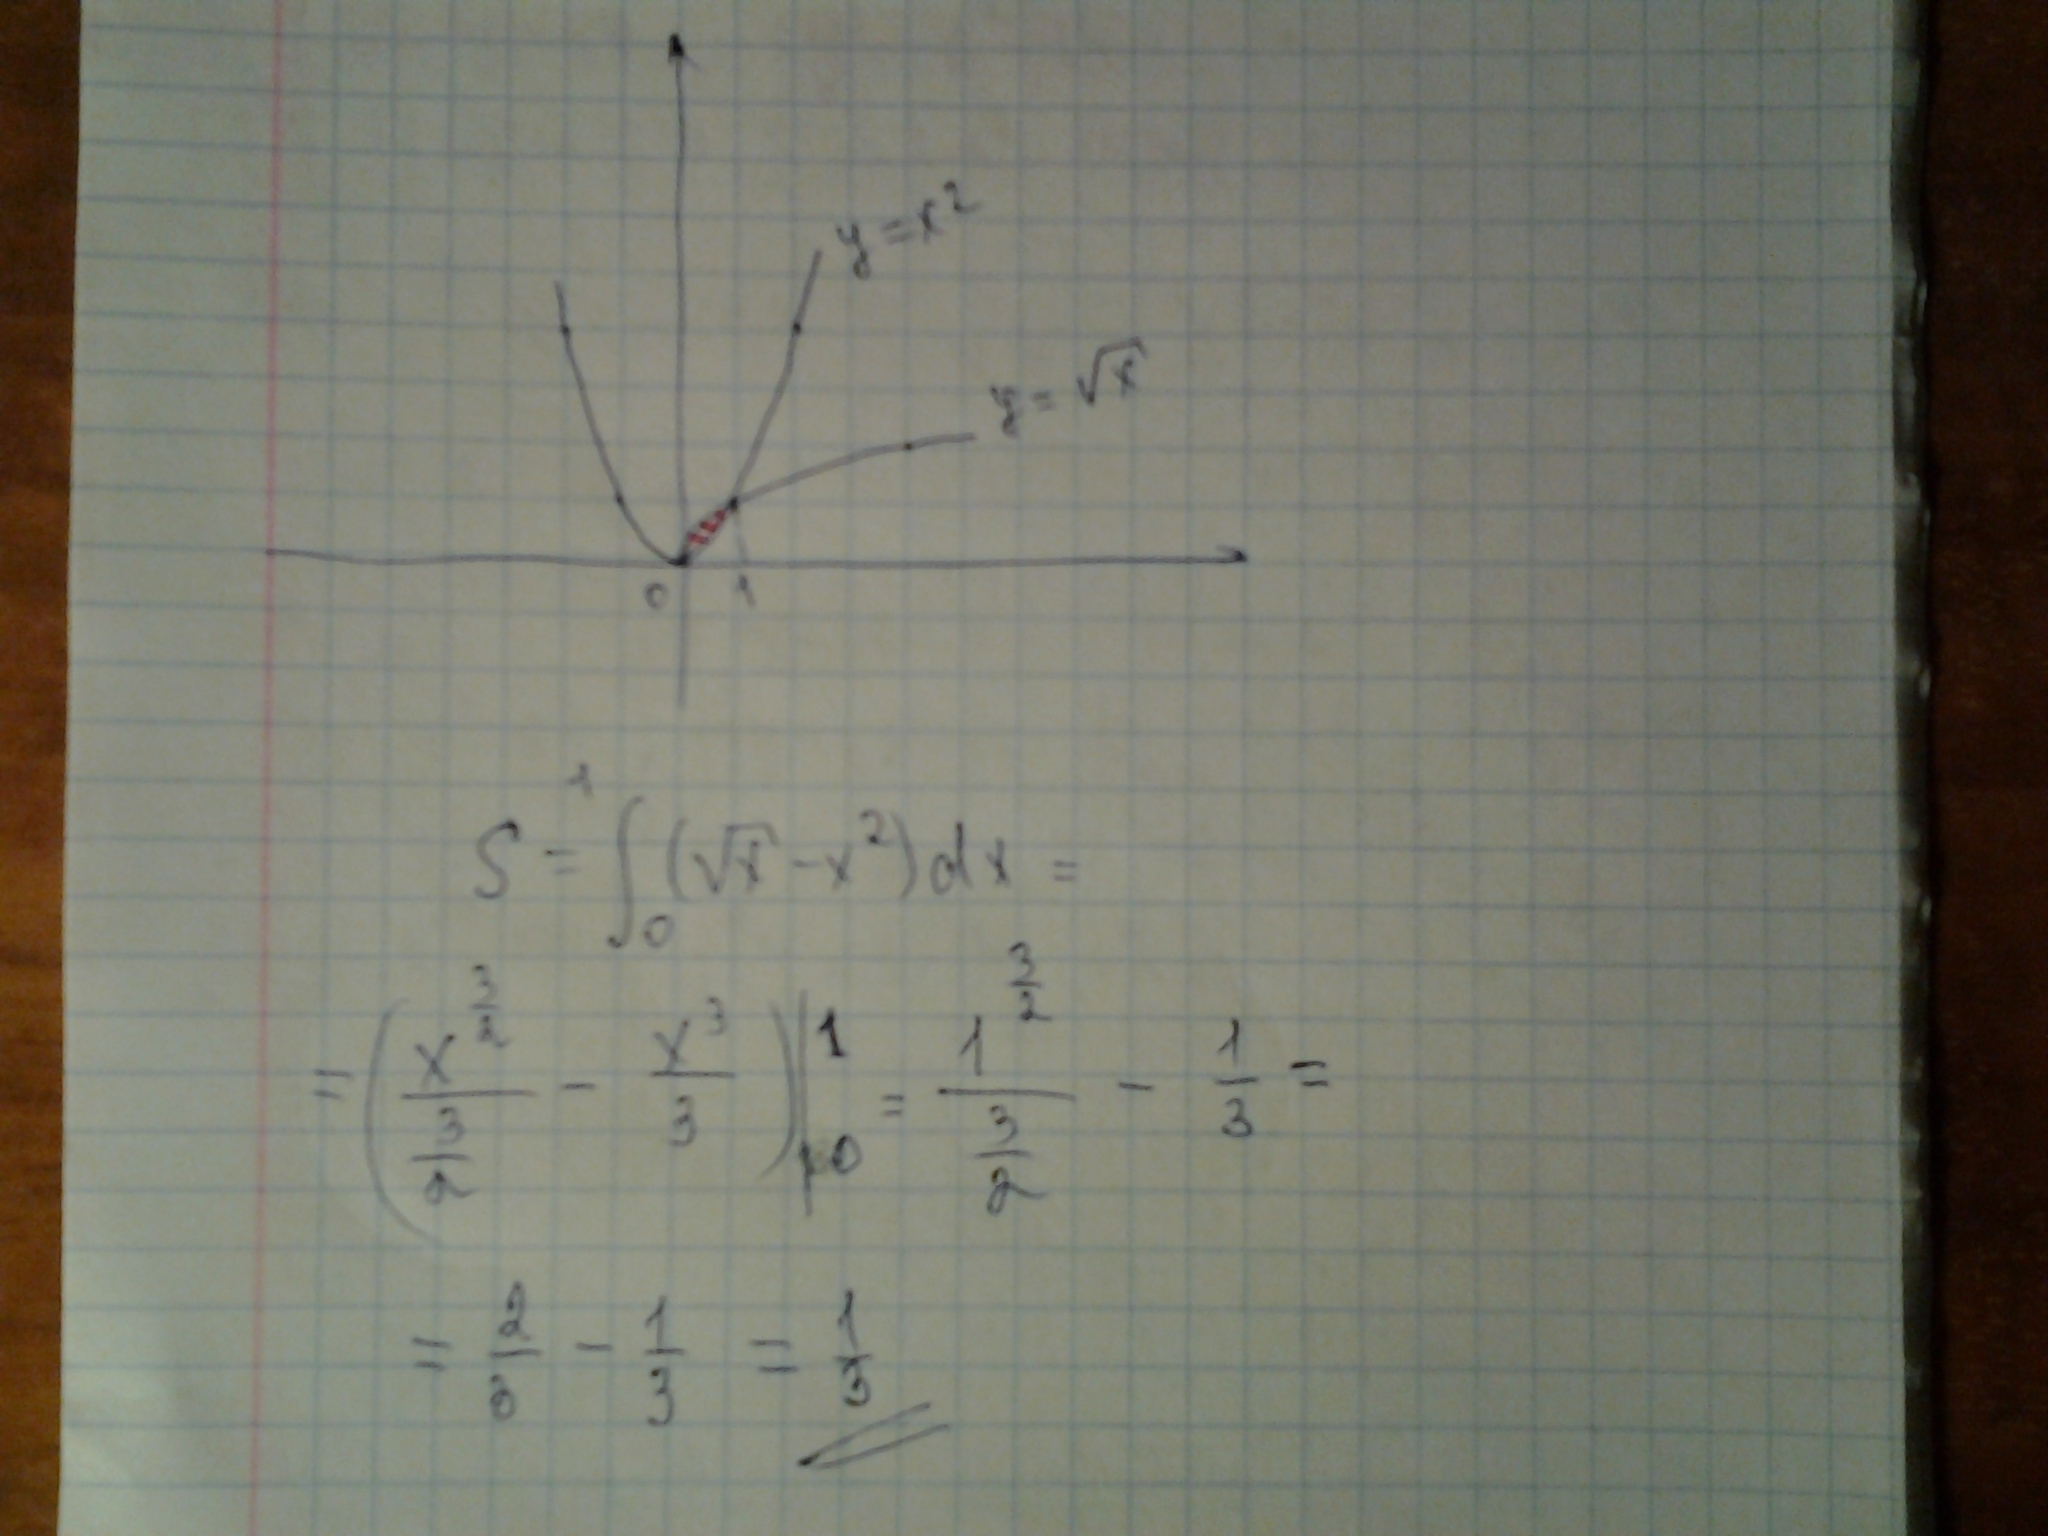 y = x²
y = √x
0 1
S = ∫₀¹ (√x - x²) dx =
= (x^(3/2) / (3/2) - x³/3) |₀¹ = 1^(3/2) / (3/2) - 1/3 =
= 2/3 - 1/3 = 1/3